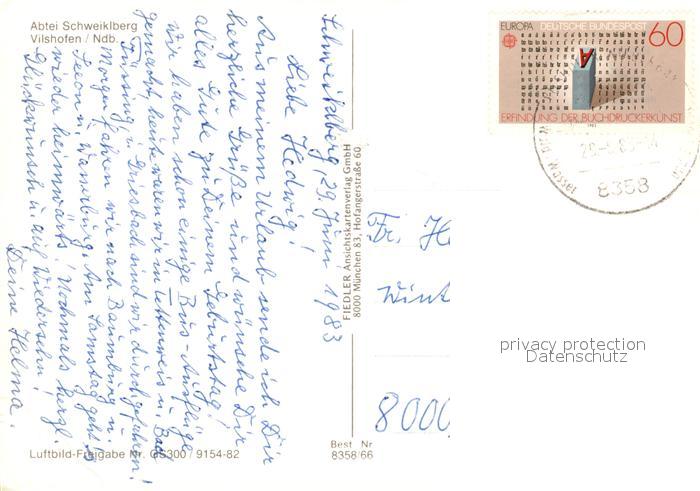 Abtei Schweiklberg
Vilshofen / Ndb.
Schweiklberg, 29. Juni 1983
Liebe Hedwig!
Aus meinem Urlaub sende ich Dir
herzliche Grüße und wünsche Dir
alles Gute zu Deinem Geburtstag!
Wir haben schon einige Bus-Ausflüge
gemacht, heute waren wir in u. Bad
Füssing, u. Griesbach sind wir durchgefahren!
Morgen fahren wir nach Baumburg u.
Seeon u. Am Samstag geht es
wieder heimwärts! Nochmals herzl.
Glückwunsch u. auf Wiedersehn!
Deine Helma.
Luftbild-Freigabe Nr. GS300 / 9154-82
FIEDLER Ansichtskartenverlag GmbH
8000 München 83, Hofangerstraße 60
Best Nr
8358/66
EUROPA DEUTSCHE BUNDESPOST 60
ERFINDUNG DER BUCHDRUCKERKUNST
1983
8358
Fr. H
Wint
8000
privacy protection
Datenschutz